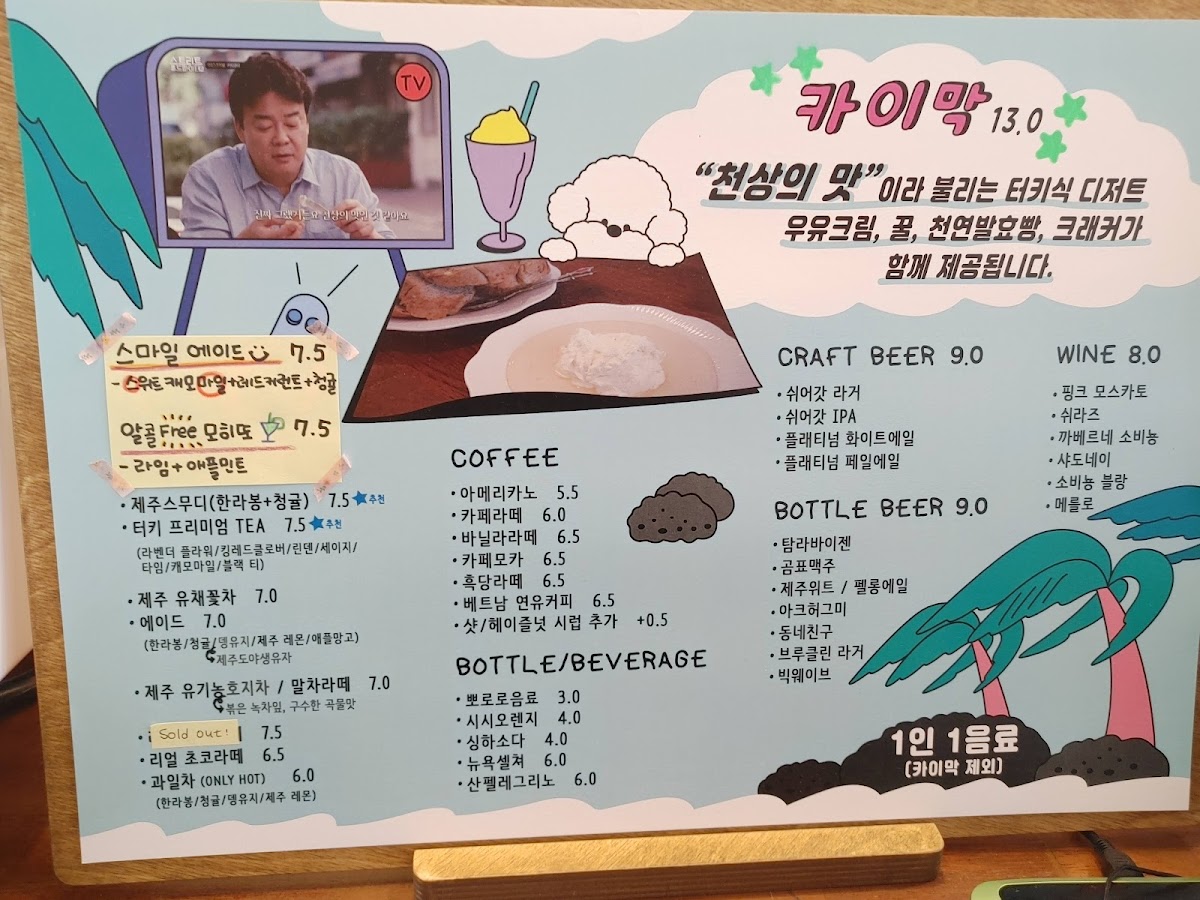 TV
진짜 그랬거든요 천상의 맛인 것 같아요
카이막 13.0
“천상의 맛”이라 불리는 터키식 디저트
우유크림, 꿀, 천연발효빵, 크래커가
함께 제공됩니다.
스마일 에이드 7.5
- 스위트캐모마일+레드커런트+청귤
알콜Free 모히또 7.5
- 라임 + 애플민트
• 제주스무디(한라봉+청귤) 7.5 추천
• 터키 프리미엄 TEA 7.5 추천
(라벤더 플라워/킹레드클로버/린덴/세이지/
타임/캐모마일/블랙 티)
• 제주 유채꽃차 7.0
• 에이드 7.0
(한라봉/청귤/뎅유지/제주 레몬/애플망고)
제주도야생유자
• 제주 유기농호지차 / 말차라떼 7.0
볶은 녹차잎, 구수한 곡물맛
• Sold out! 7.5
• 리얼 초코라떼 6.5
• 과일차 (ONLY HOT) 6.0
(한라봉/청귤/뎅유지/제주 레몬)
COFFEE
• 아메리카노 5.5
• 카페라떼 6.0
• 바닐라라떼 6.5
• 카페모카 6.5
• 흑당라떼 6.5
• 베트남 연유커피 6.5
• 샷/헤이즐넛 시럽 추가 +0.5
BOTTLE/BEVERAGE
• 뽀로로음료 3.0
• 시시오렌지 4.0
• 싱하소다 4.0
• 뉴욕셀쳐 6.0
• 산펠레그리노 6.0
CRAFT BEER 9.0
• 쉬어갓 라거
• 쉬어갓 IPA
• 플래티넘 화이트에일
• 플래티넘 페일에일
BOTTLE BEER 9.0
• 탐라바이젠
• 곰표맥주
• 제주위트 / 펠롱에일
• 아크허그미
• 동네친구
• 브루클린 라거
• 빅웨이브
WINE 8.0
• 핑크 모스카토
• 쉬라즈
• 까베르네 소비뇽
• 샤도네이
• 소비뇽 블랑
• 메를로
1인 1음료
(카이막 제외)